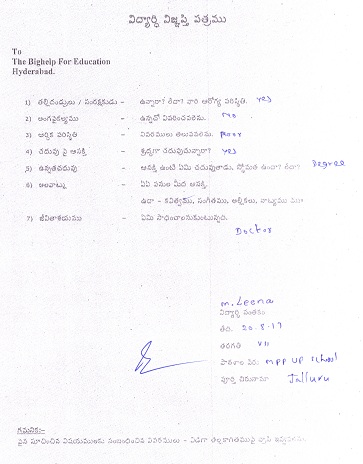 విద్యార్థి విజ్ఞప్తి పత్రము
To
The Bighelp For Education
Hyderabad.
1) తల్లిదండ్రులు / సంరక్షకుడు - ఉన్నారా? లేదా? వారి ఆరోగ్య పరిస్థితి. yes
2) అంగవైకల్యము - ఉన్నదో వివరించవలెను. No
3) ఆర్థిక పరిస్థితి - వివరములు తెలుపవలెను. Poor
4) చదువు పై ఆసక్తి - శ్రద్ధగా చదువుచున్నారా? yes
5) ఉన్నతచదువు - ఆసక్తి ఉంటే ఏమి చదువుతాడు, స్తోమత ఉందా? లేదా? Degree
6) అలవాట్లు - ఏఏ పనుల మీద ఆసక్తి.
ఉదా - కవిత్వమ్, సంగీతము, అల్లికలు, నాట్యము
7) జీవితాశయము - ఏమి సాధించాలనుకుంటున్నది.
Doctor
M. Leena
విద్యార్థి సంతకం
తేది. 20-8-17
తరగతి VII
పాఠశాల పేరు MPP UP School
పూర్తి చిరునామా Jalluru
గమనిక:-
పైన సూచించిన విషయములకు సంబంధించిన వివరములు - విడిగా తెల్లకాగితముపై వ్రాసి